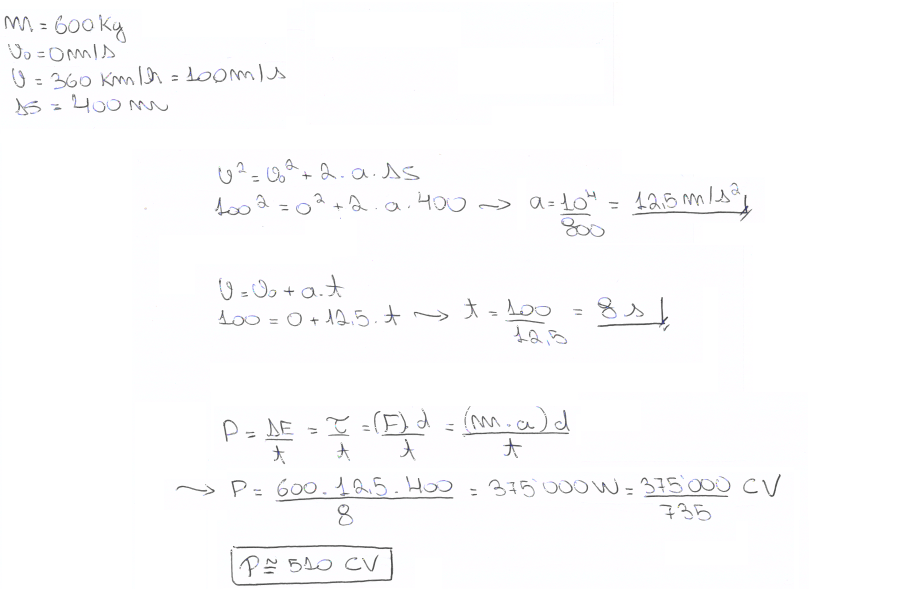 m = 600 kg
v₀ = 0 m/s
v = 360 km/h = 100 m/s
Δs = 400 m
v² = v₀² + 2 . a . Δs
100² = 0² + 2 . a . 400 → a = 10⁴/800 = 12,5 m/s²
v = v₀ + a.t
100 = 0 + 12,5 . t → t = 100/12,5 = 8 s
P = ΔE/t = τ/t = (F).d/t = (m.a)d/t
→ P = 600 . 12,5 . 400/8 = 375'000 W = 375'000/735 CV
P ≅ 510 CV